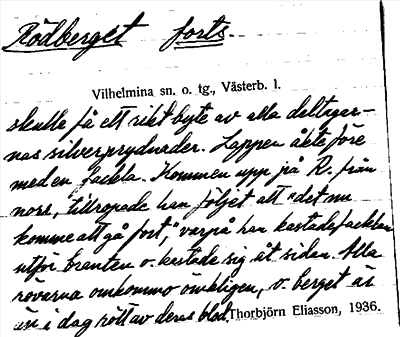 Rödberget forts.
Vilhelmina sn. o. tg., Västerb. l.
skulle få ett rikt byte av alla deltagar-
nas silverprydnader. Lappen åkte före
med en fackla. Kommen upp på R. från
norr, tillropade han följet att "det nu
komme att gå fort," varpå han kastade facklan
utför branten o. kastade sig åt sidan. Alla
rövarna omkommo ömkligen, o. berget är
än i dag rött av deras blod. Thorbjörn Eliasson, 1936.